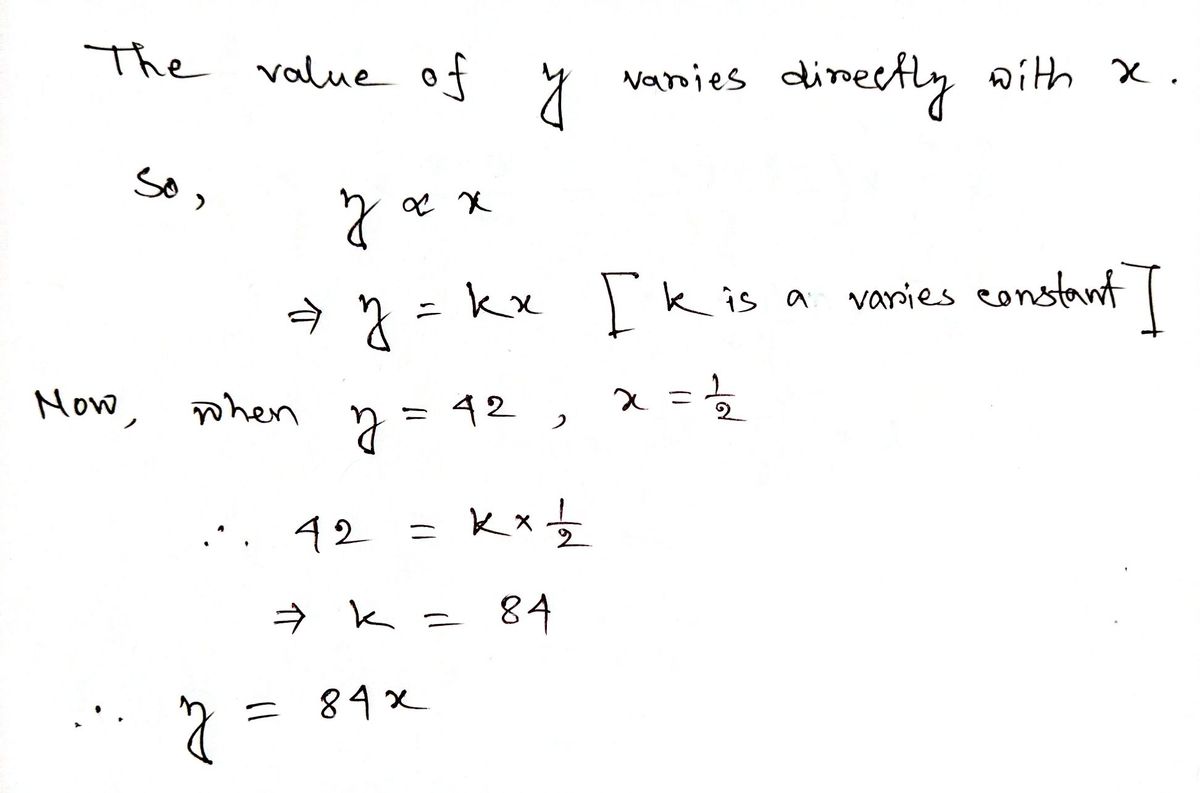 The value of y varies directly with x.
So, y ∝ x
⇒ y = kx [k is a varies constant]
Now, when y = 42, x = 1/2
∴ 42 = k × 1/2
⇒ k = 84
∴ y = 84x